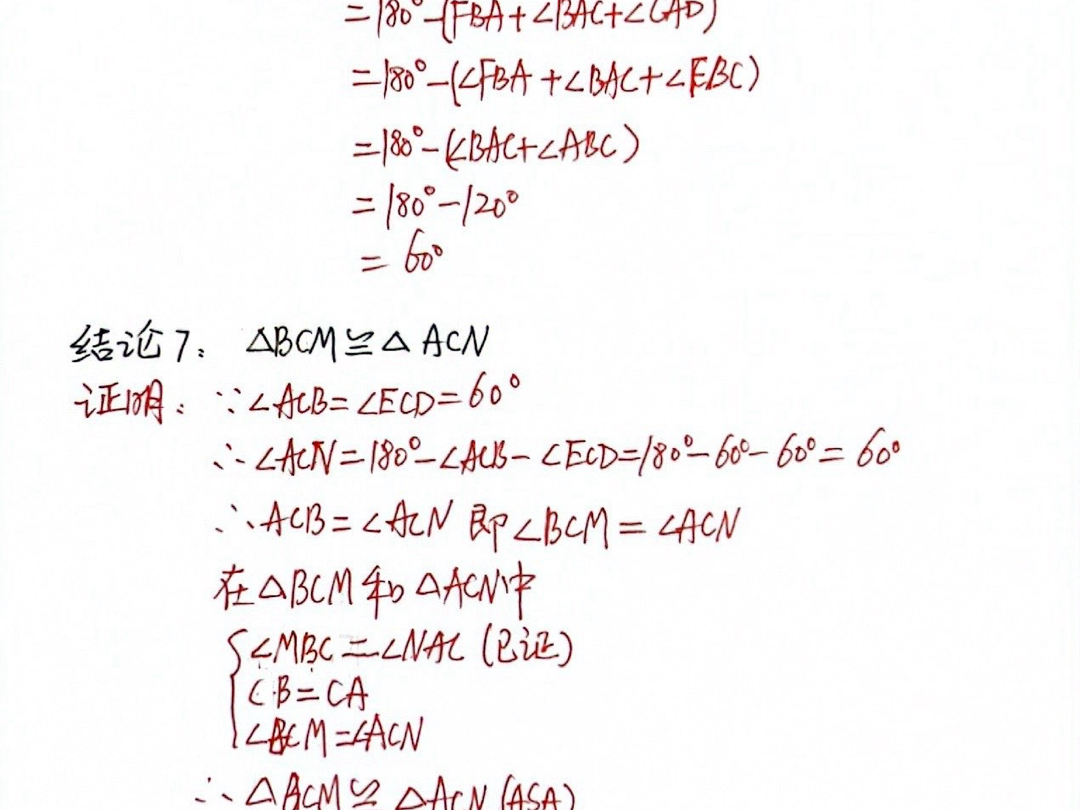 =180°-(FBA+∠BAC+∠CAD)
=180°-(∠FBA+∠BAC+∠EBC)
=180°-(∠BAC+∠ABC)
=180°-120°
=60°
结论7: △BCM≌△ACN
证明: ∵∠ACB=∠ECD=60°
∴∠ACN=180°-∠ACB-∠ECD=180°-60°-60°=60°
∴ACB=∠ACN 即∠BCM=∠ACN
在△BCM和△ACN中
∠MBC=∠NAC(已证)
CB=CA
∠BCM=∠ACN
∴△BCM≌△ACN(ASA)